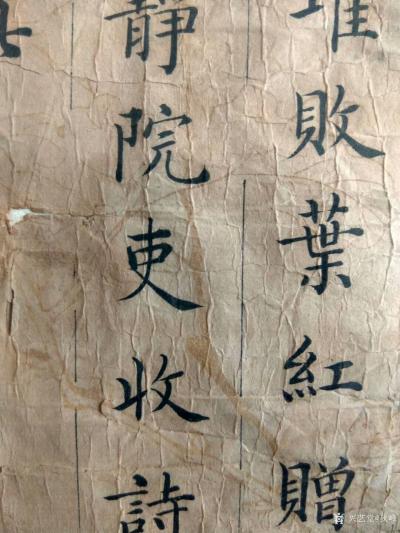 堆敗葉紅贈
靜院吏收詩